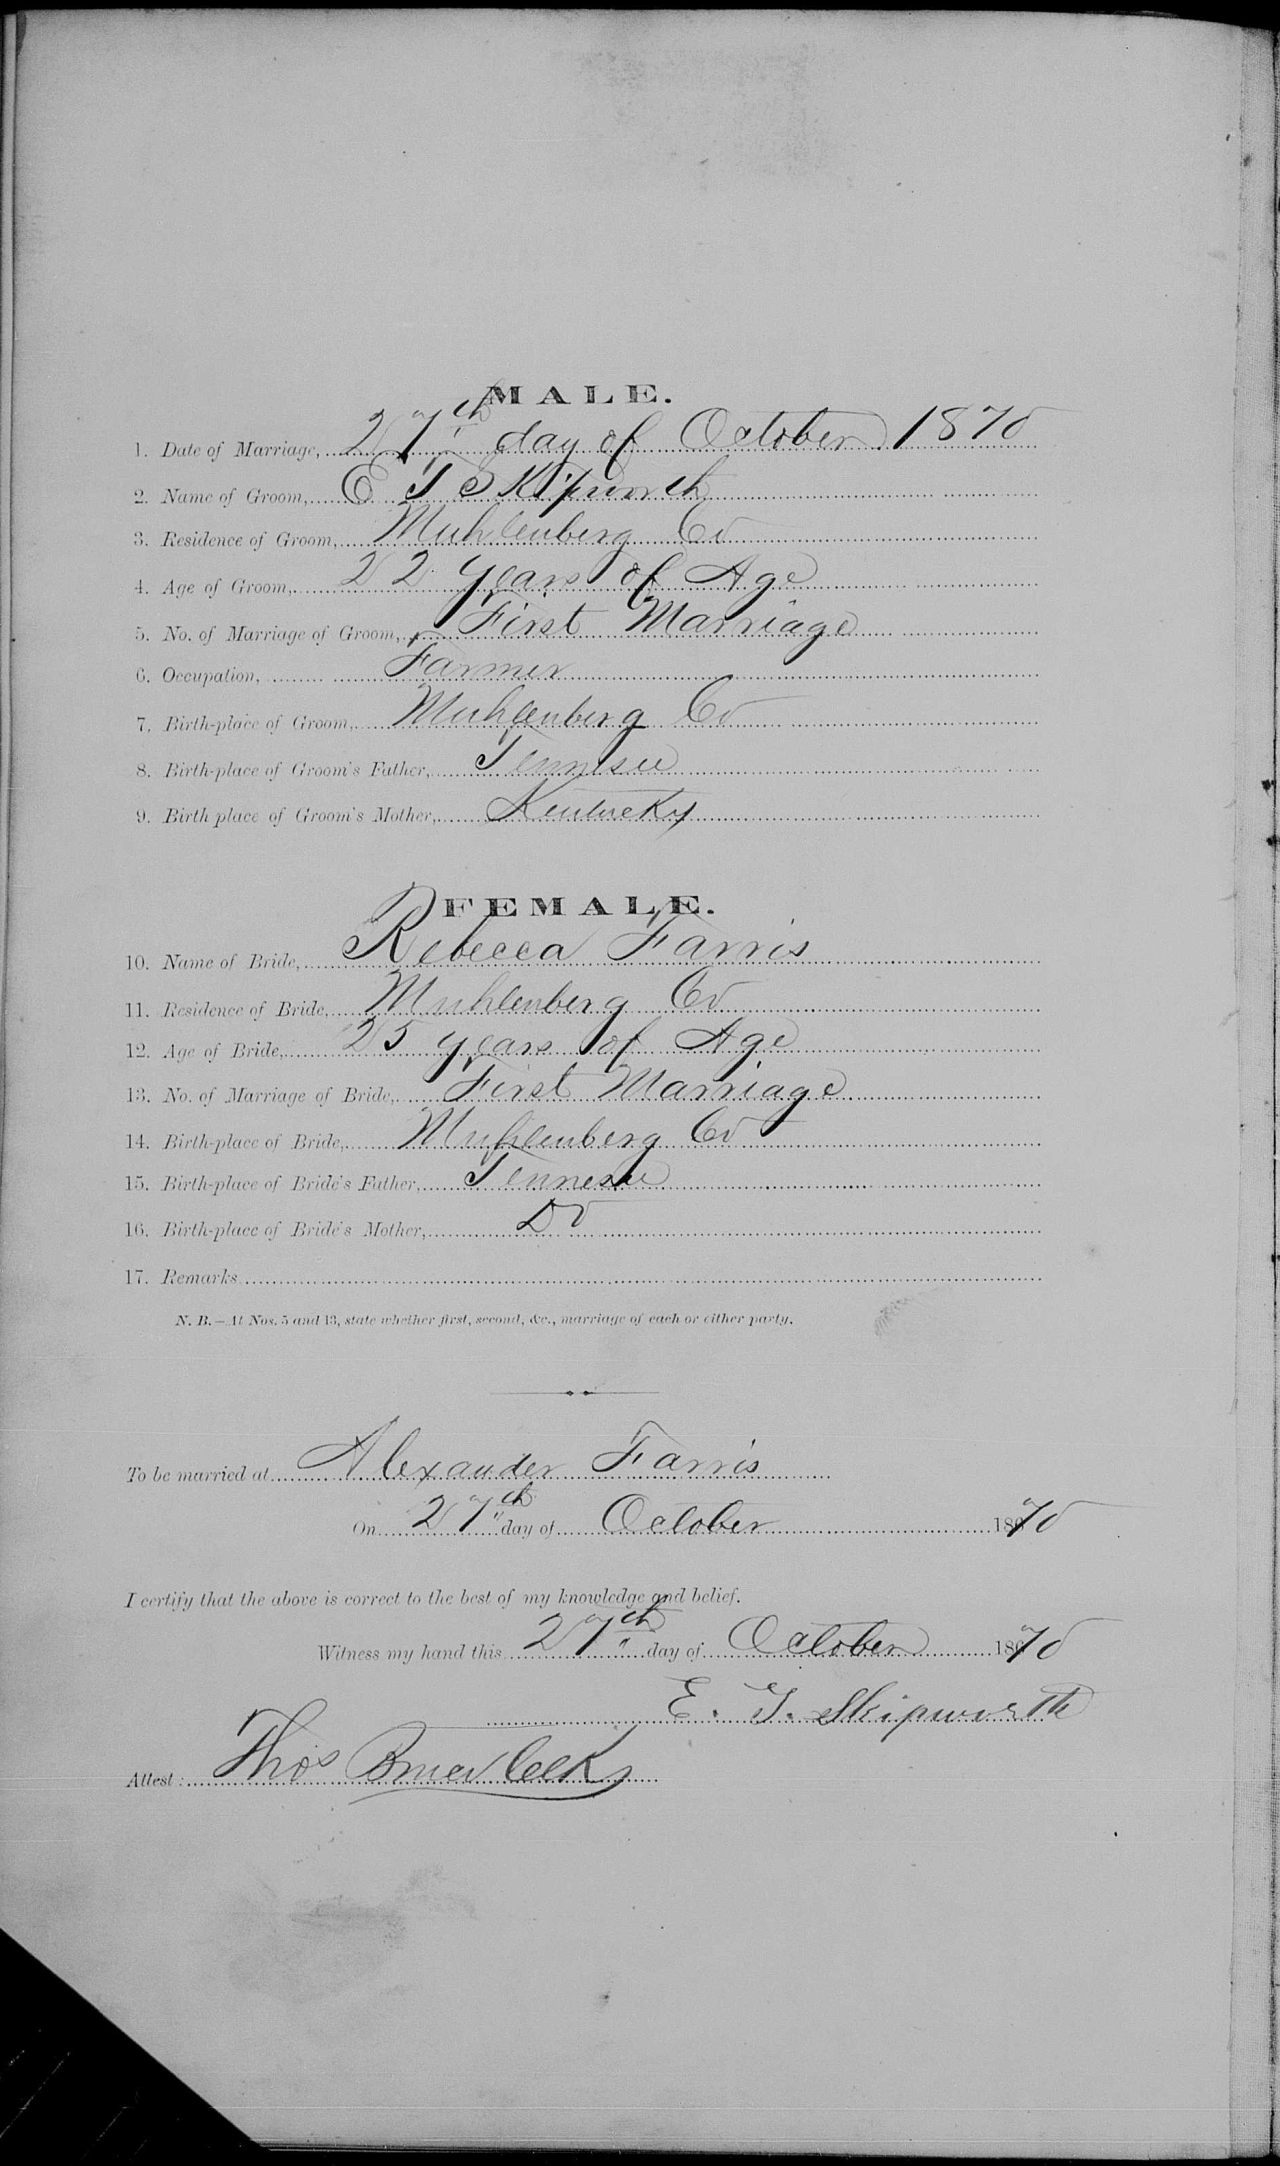 MALE.
1. Date of Marriage, 27th day of October 1870
2. Name of Groom, E T Skipworth
3. Residence of Groom, Muhlenberg Co
4. Age of Groom, 22 years of Age
5. No. of Marriage of Groom, First Marriage
6. Occupation, Farmer
7. Birth-place of Groom, Muhlenberg Co
8. Birth-place of Groom's Father, Tennesee
9. Birth place of Groom's Mother, Kentucky
FEMALE.
10. Name of Bride, Rebecca Farris
11. Residence of Bride, Muhlenberg Co
12. Age of Bride, 25 years of Age
13. No. of Marriage of Bride, First Marriage
14. Birth-place of Bride, Muhlenberg Co
15. Birth-place of Bride's Father, Tennesee
16. Birth-place of Bride's Mother, Do
17. Remarks
N. B.—At Nos. 5 and 13, state whether first, second, &c., marriage of each or either party.
To be married at Alexander Farris
On 27th day of October 1870
I certify that the above is correct to the best of my knowledge and belief.
Witness my hand this 27th day of October 1870
E. T. Skipworth
Attest: Thos Bruce Clk